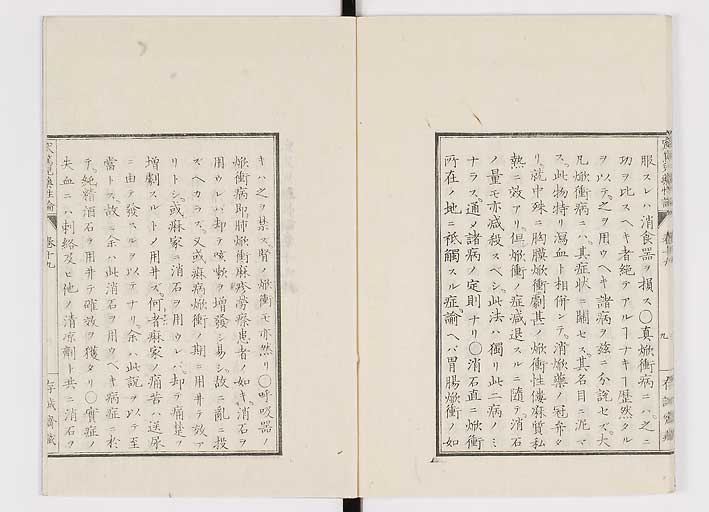 服スレハ消食器ヲ損ス〇真焮衝病ニハ之ニ
功ヲ比スヘキ者絶テアルヿナキヿ歴然タル
ヲ以テ之ヲ用ウヘキ諸病ヲ茲ニ分説セズ大
凡焮衝病ニハ其症状ニ關セス其名目ニ泥マ
ス此物特リ瀉血ト相併ンテ消焮藥ノ冠弁タ
リ就中殊ニ胸膜焮衝劇甚ノ焮衝性僂麻質私
熱ニ效アリ但焮衝ノ症減退スルニ随テ消石
ノ量モ亦減殺スベシ此法ハ獨リ此二病ノミ
ナラス通メ諸病ノ定則ナリ〇消石直ニ焮衝
所在ノ地ニ祗觸スル症諭ヘバ胃腸焮衝ノ如
九
キハ之ヲ禁ス腎ノ焮衝モ亦然リ〇呼吸器ノ
焮衝病即肺焮衝麻疹勞瘵患者ノ如キ消石ヲ
用ウレバ却テ咳嗽ヲ増發シ易シ故ニ亂ニ投
ズヘカラズ又或痳病焮衝ノ期ニ用井テ效ア
リトシ或痳家ニ消石ヲ用ウレバ却テ痛楚ヲ
増劇スルトノ用井ズ何者痳家ノ痛苦ハ送尿
ニ由テ發スルヲ以テナリ余ハ此説ヲ以テ至
當トス故ニ余ハ此消石ヲ用ウヘキ病症ニ於
テ純精酒石ヲ用井テ確效ヲ獲タリ〇實症ノ
失血ニハ刺絡及ヒ他ノ清凉劑ト共ニ消石ヲ
卷十九
存誠齋藏